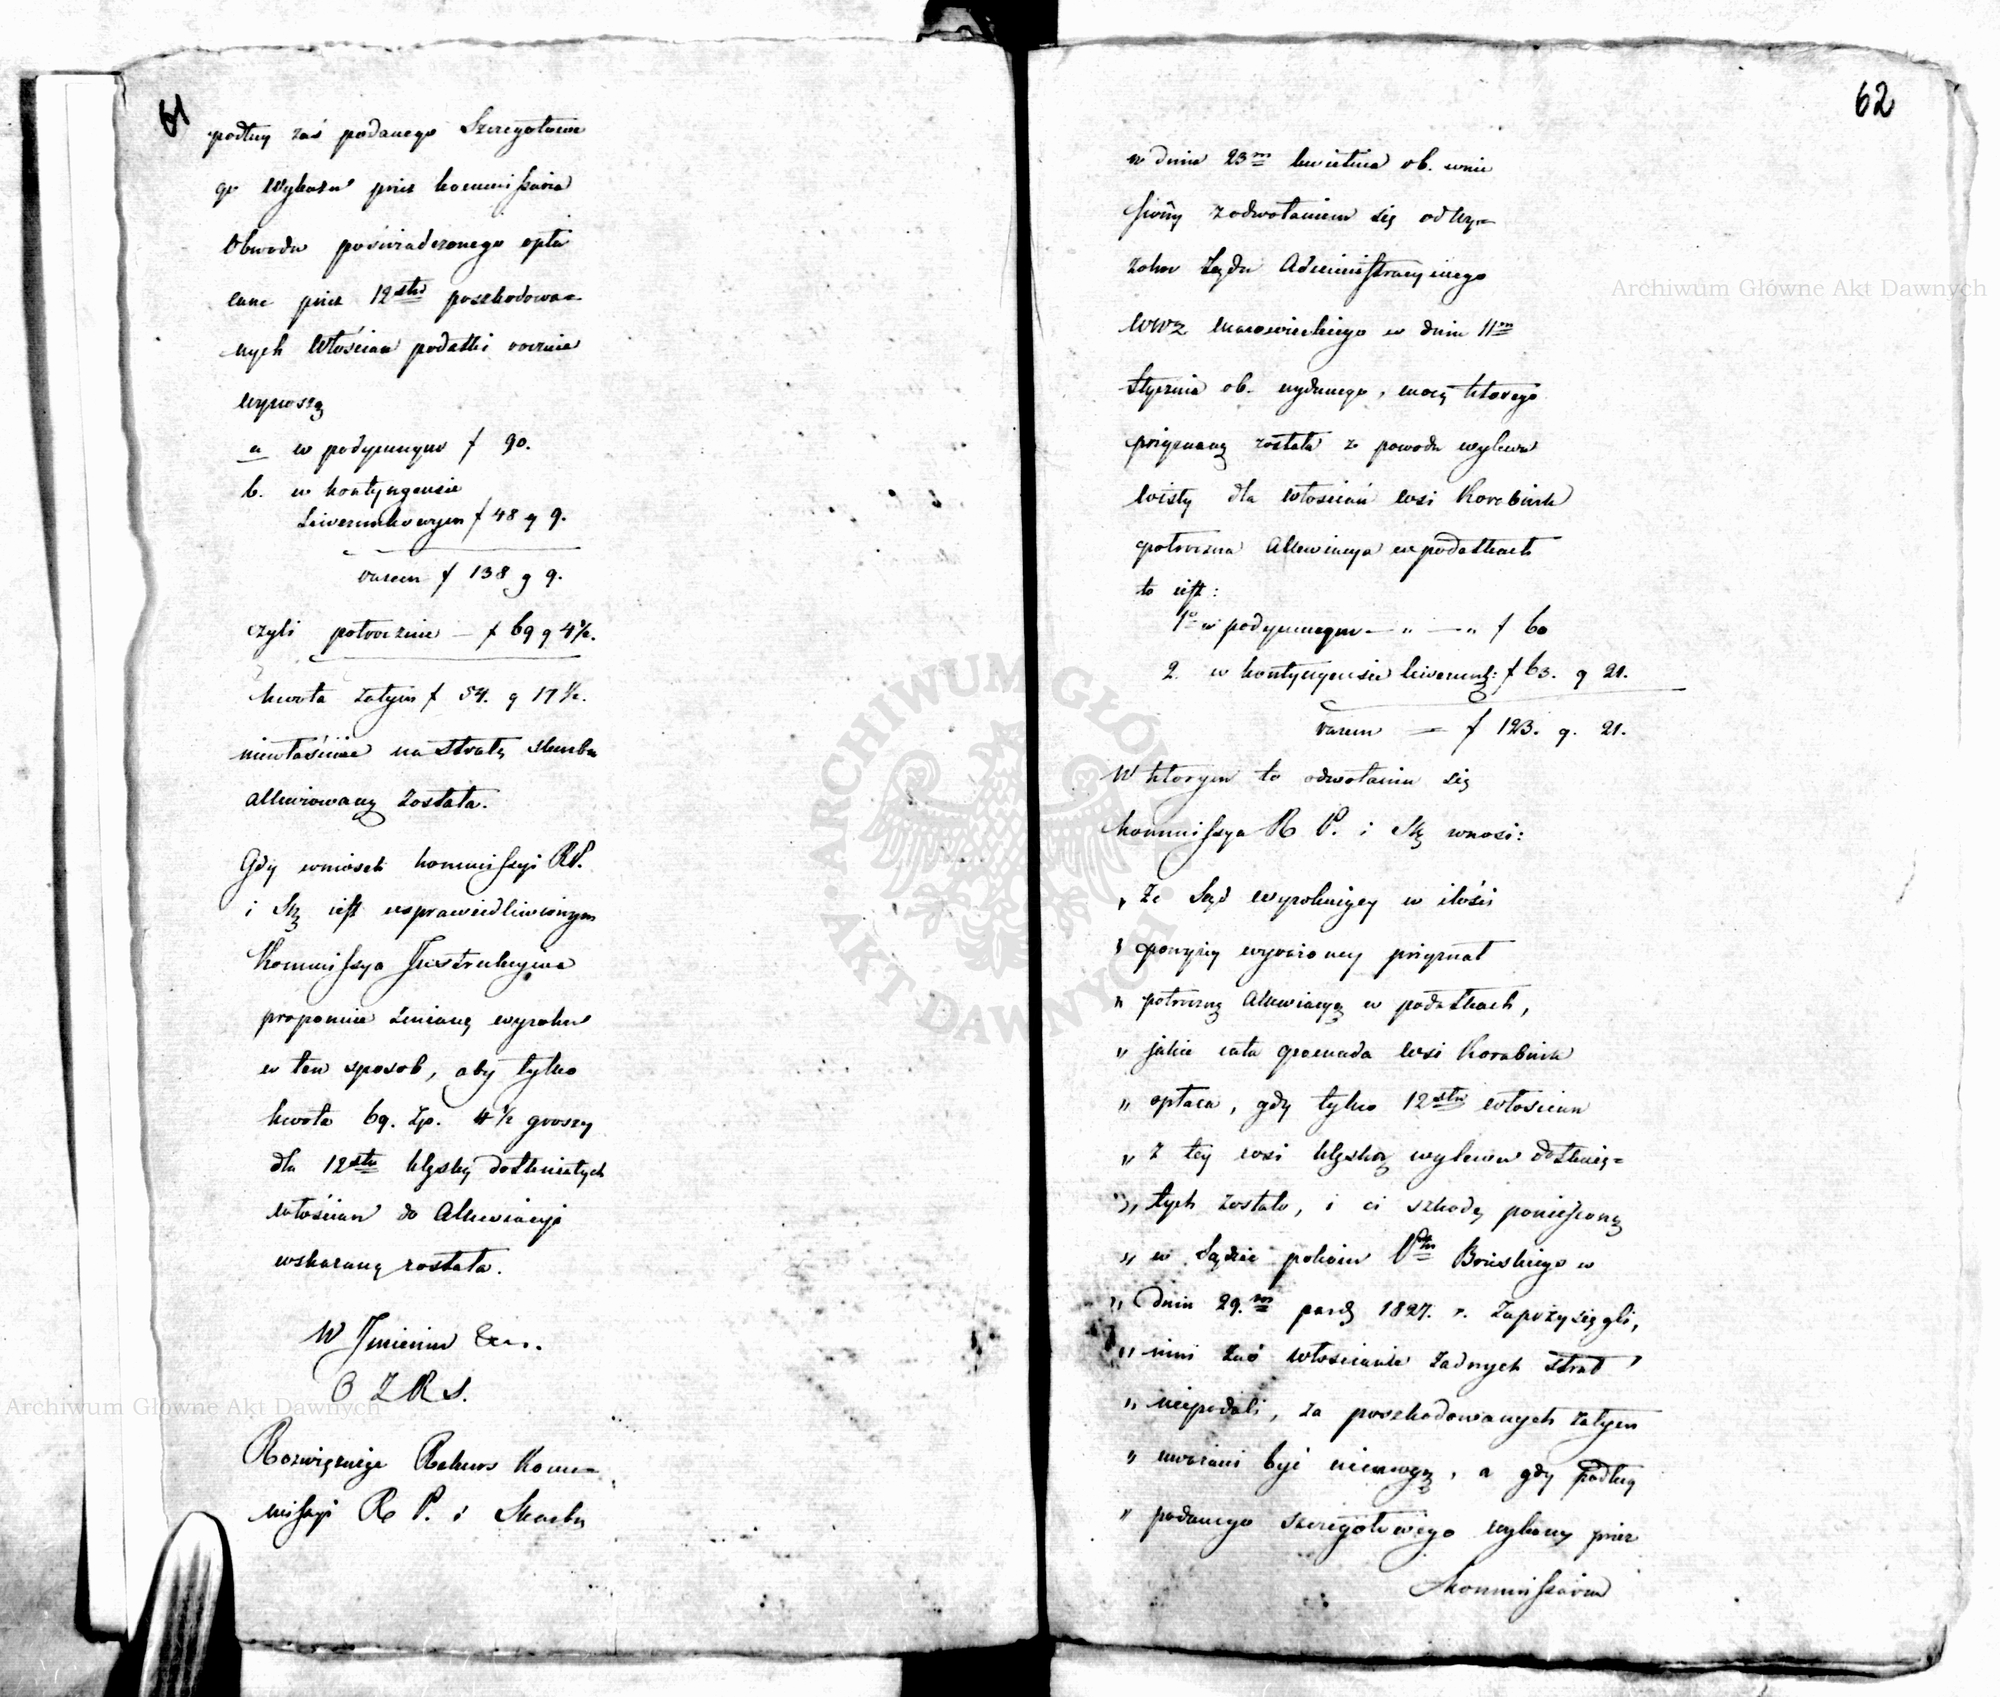 61
podług zaś podanego Szczegółowe
go Wykazu przez kommissarza
Obwodu poświadczonego opła
cane przez 12stu poszkodowa=
nych Włościan podatki rocznie
wynoszą
a w podymnym f 90.
b. w kontyngensie
Liwerunkowym f 48 g 9.
razem f 138 g 9.
czyli półrocznie — f 69 g 4½.
kwota zatym f 54. g 17½.
niewłaściwie na stratę skarbu
allewiowaną została.
Gdy wniosek kommissyi R P.
i Sk iest usprawiedliwionym
Kommissya Instrukcyina
proponuie zmianę wyroku
w ten sposob, aby tylko
kwota 69. Zp. 4½ groszy
dla 12stu klęską dotkniętych
włościan do Allewiacyi
wskazaną została.
W Imieniu &c.
O Z R S.
Rozwiązuiąc Rekurs Kom=
missyi R P. i Skarbu
62
w dniu 23m kwietnia ob. wnie
siony z odwołaniem się od wy=
roku Sądu Administracyinego
WWZ Mazowieckiego w dniu 11m
Stycznia ob. wydanego, mocą ktorego
przyznaną została z powodu wylewu
Wisły dla włościan wsi Korabink
półroczna Allewiacya w podatkach
to iest:
1o w podymnym — " — " f 60
2. w kontyngensie liwerunk: f 63. g 21.
razem — f 123. g. 21.
W ktorym to odwołaniu się
kommissya R P. i Sk wnosi:
„ Ze Sąd wyrokuiący w ilości
„ powyżey wyrażoney przyznał
„ półroczną Allewiacyą w podatkach,
„ jakie cała gromada wsi Korabink
„ opłaca, gdy tylko 12stu włościan
„ z tey wsi klęską wylewu dotknię=
„ tych zostało, i ci szkodę poniesioną
„ w Sądzie pokoiu Ptu Brzeskiego w
„ dniu 29.m paźd 1827. r. zaprzysięgli,
„ inni zaś włościanie żadnych strat
„ niepodali, za poszkodowanych zatym
„ uważani być niemogą, a gdy podług
„ podanego szczegółowego wykazu przez
Kommissarza
Archiwum Główne Akt Dawnych
Archiwum Główne Akt Dawnych
ARCHIWUM GŁÓWNE AKT DAWNYCH